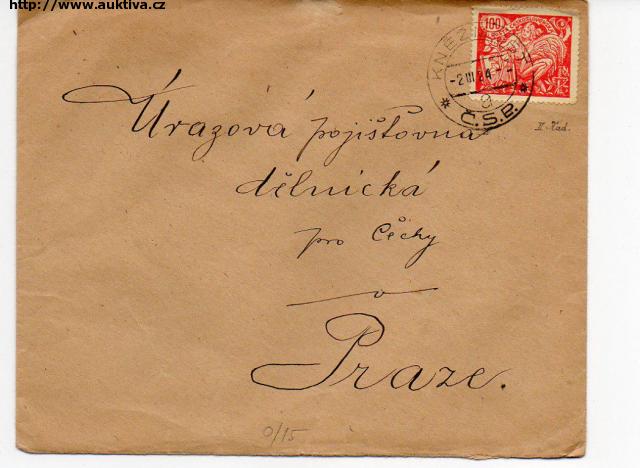 http://www.auktiva.cz
100
-2.III.24.-
Č.S.P.
II. řad.
Úrazová pojišťovna
dělnická
pro Čechy
v
Praze.
0/15